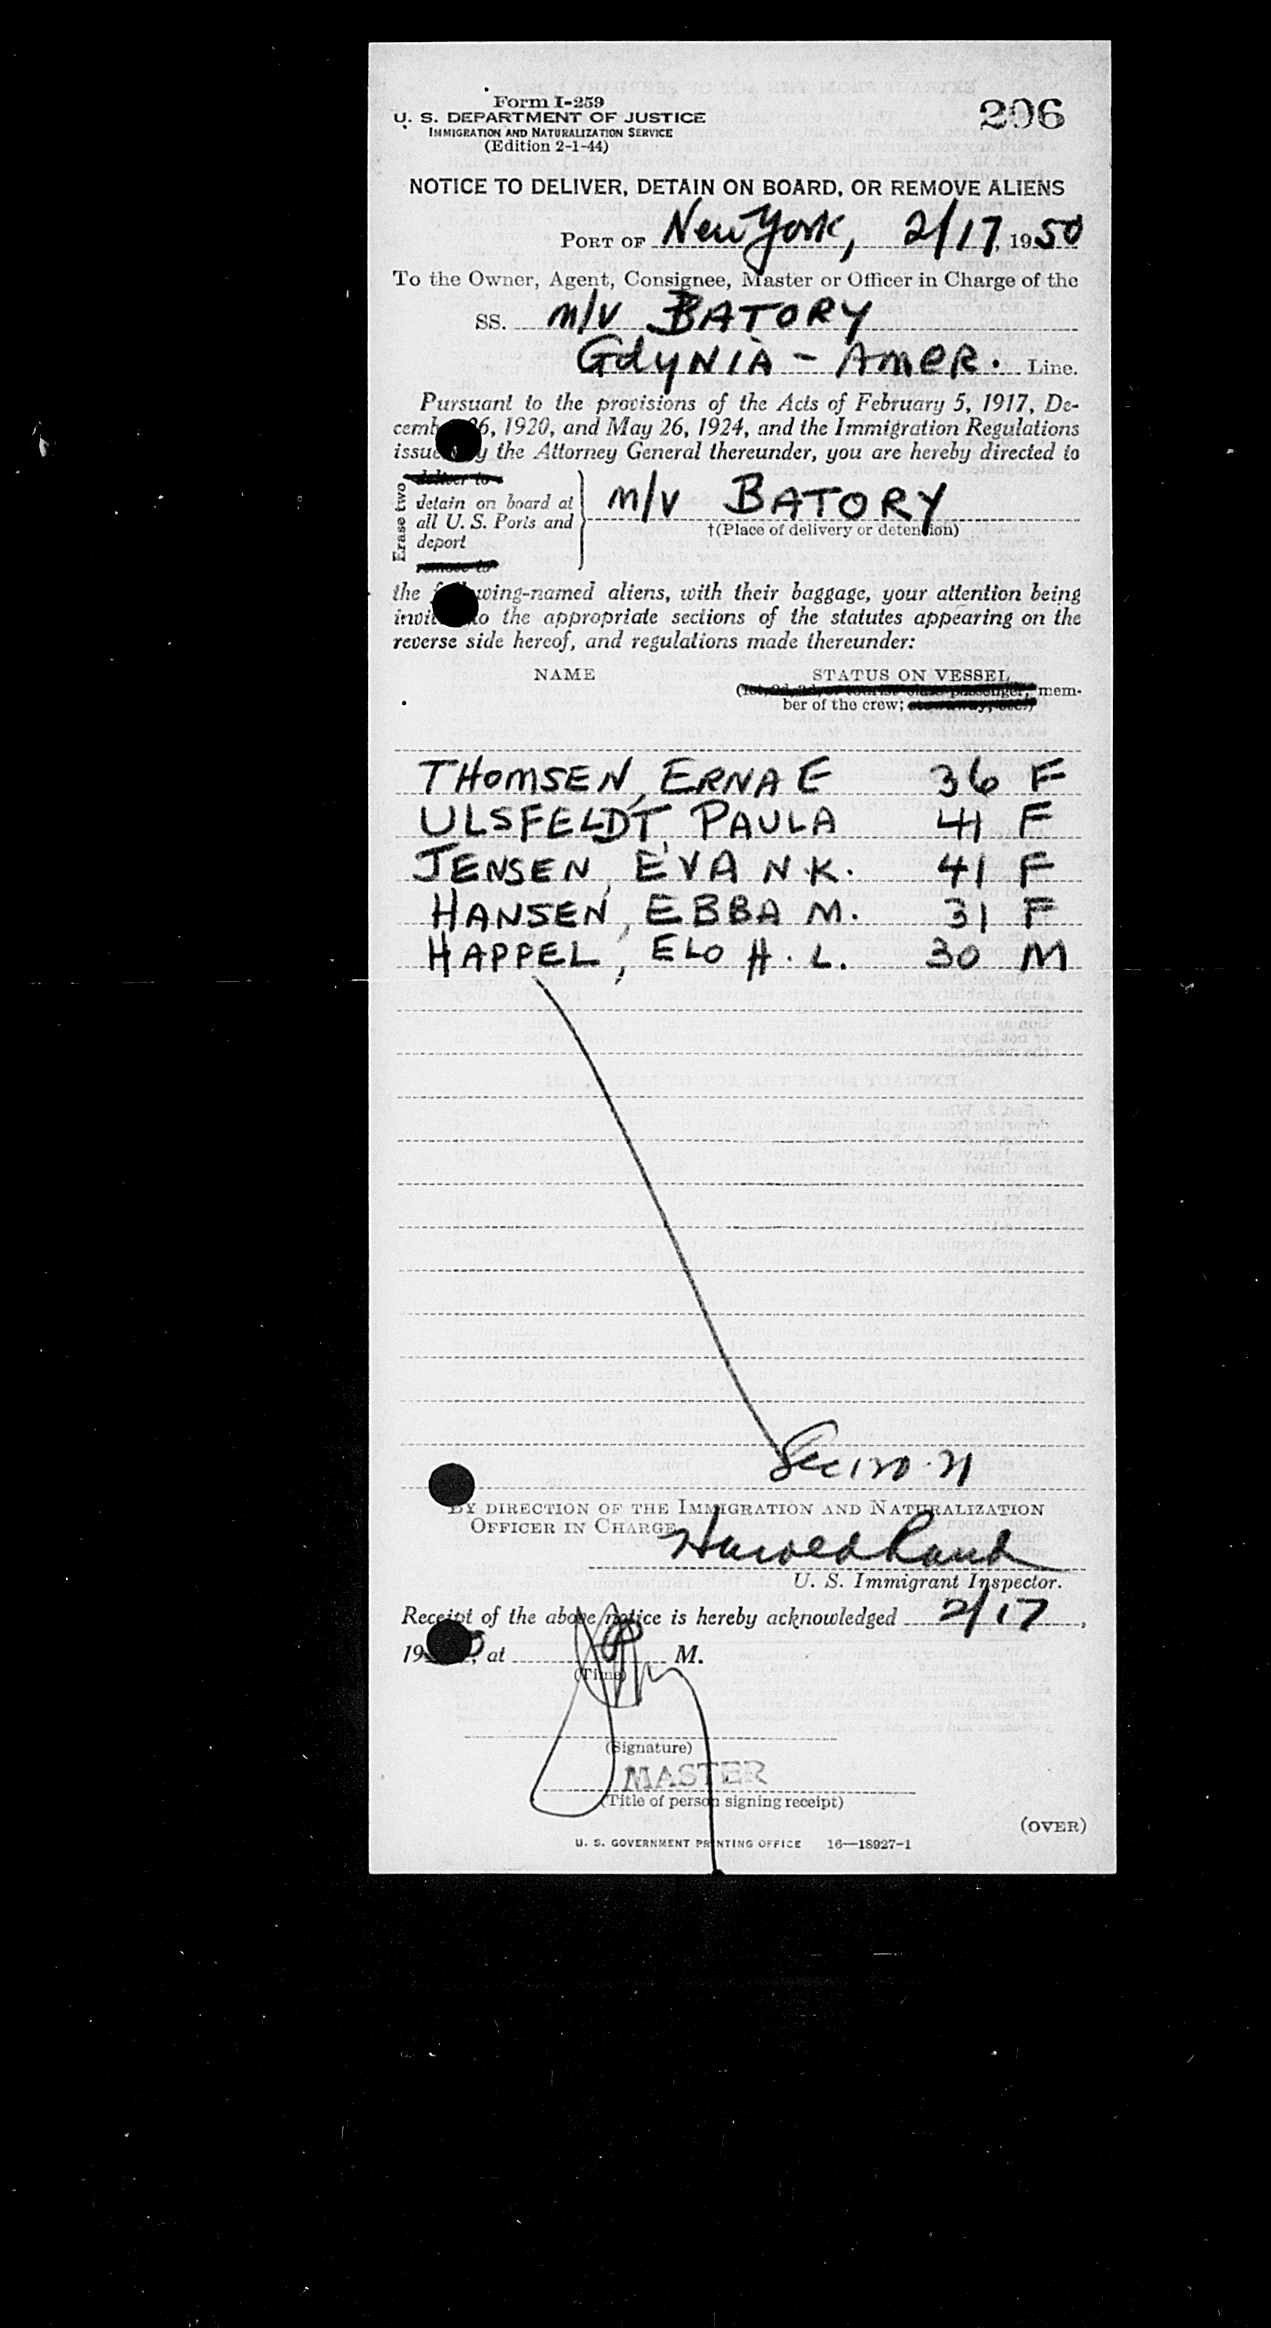 Form I-259
U. S. DEPARTMENT OF JUSTICE
IMMIGRATION AND NATURALIZATION SERVICE
(Edition 2-1-44)
206
NOTICE TO DELIVER, DETAIN ON BOARD, OR REMOVE ALIENS
PORT OF New York, 2/17, 1950
To the Owner, Agent, Consignee, Master or Officer in Charge of the
SS. M/V BATORY
GdYNIA - AMER. Line.
Pursuant to the provisions of the Acts of February 5, 1917, De-
cemb 26, 1920, and May 26, 1924, and the Immigration Regulations
issued by the Attorney General thereunder, you are hereby directed to
Erase two
deliver to
detain on board at
all U. S. Ports and
deport
remove to
M/V BATORY
†(Place of delivery or detention)
the following-named aliens, with their baggage, your attention being
invit to the appropriate sections of the statutes appearing on the
reverse side hereof, and regulations made thereunder:
NAME STATUS ON VESSEL
(1st, 2d, 3d, or tourist class passenger; mem-
ber of the crew; stowaway, etc.)
THOMSEN, ERNA E 36 F
ULSFELDT, PAULA 41 F
JENSEN, EVA N.K. 41 F
HANSEN, EBBA M. 31 F
HAPPEL, ELO H. L. 30 M
Sec 120.21
BY DIRECTION OF THE IMMIGRATION AND NATURALIZATION
OFFICER IN CHARGE
Harold
U. S. Immigrant Inspector.
Receipt of the above notice is hereby acknowledged 2/17,
19 0, at P M.
(Time)
(Signature)
MASTER
(Title of person signing receipt)
(OVER)
U. S. GOVERNMENT PRINTING OFFICE 16—18927-1